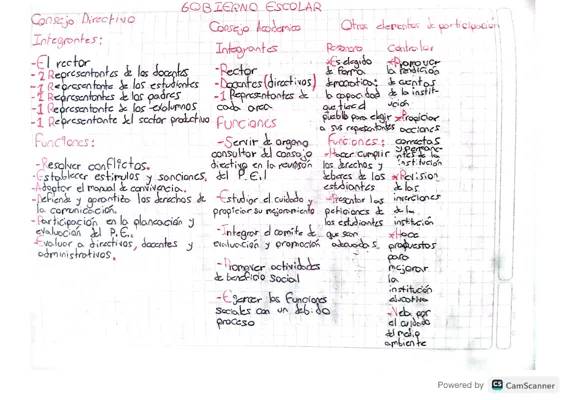 GOBIERNO ESCOLAR
Consejo Directivo
Integrantes:
-El rector
-2 Representantes de los docentes
-1 Representante de los estudiantes
-1 Representante de los padres
-1 Representante de los exalumnos
-1 Representante del sector productivo
Funciones:
-Resolver conflictos.
-Establecer estimulos y sanciones.
-Adoptar el manual de convivencia.
-Defiende y garantiza los derechos de
la comunicación.
-Participación en la planeación y
evaluación del P.E.I.
-Evaluar a directivos, docentes y
administrativos.
Consejo Academico
Integrantes
-Rector
-Docentes (directivos)
-1 Representantes de
cada area
Funciones
-Servir de organo
consultor del consejo
directivo en la revision
del P.E.I
-Estudiar el cuidado y
propiciar su mejoramiento
-Integrar el comite de
evaluación y promoción
-Promover actividades
de beneficio social
-Ejercer las funciones
sociales con un debido
proceso
Otros elementos de participación
Personero
*Es elegido
de forma
democratica:
la capacidad
que tiene el
pueblo para elegir
a sus representantes
Funciones:
*Hacer cumplir
los derechos y
deberes de los
estudiantes
-Presentar las
peticiones de
los estudiantes
que sean
adecuadas.
Contralor
*Promover
la rendición
de cuentas
de la instit-
ución
*Propiciar
acciones
correctas
institución
*Revisión
de las
de la
institución
*Hace
propuestas
para
mejorar
la
institución
educativa
-Vela por
el cuidado
del medio
ambiente
Powered by CS CamScanner